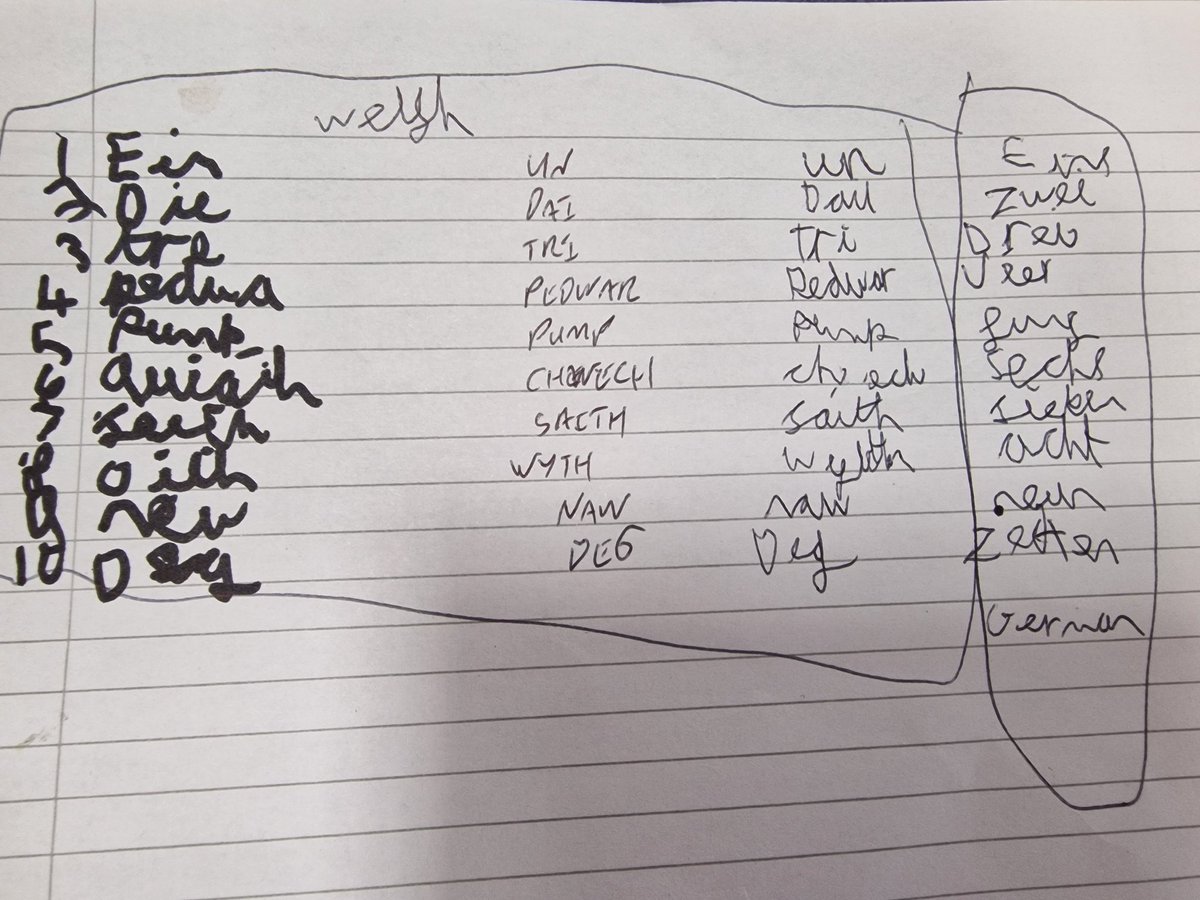 welsh
1 Ein UN un Eins
2 Die DAI Dau zwei
3 tre TRI tri Drei
4 pedwa PEDWAR Pedwar Veer
5 Pump PUMP Pump
6 CHWECH sechs
7 SAITH saith
8 oith WYTH acht
9 new NAW naw neun
10 Deg DEG Deg Zetten
German